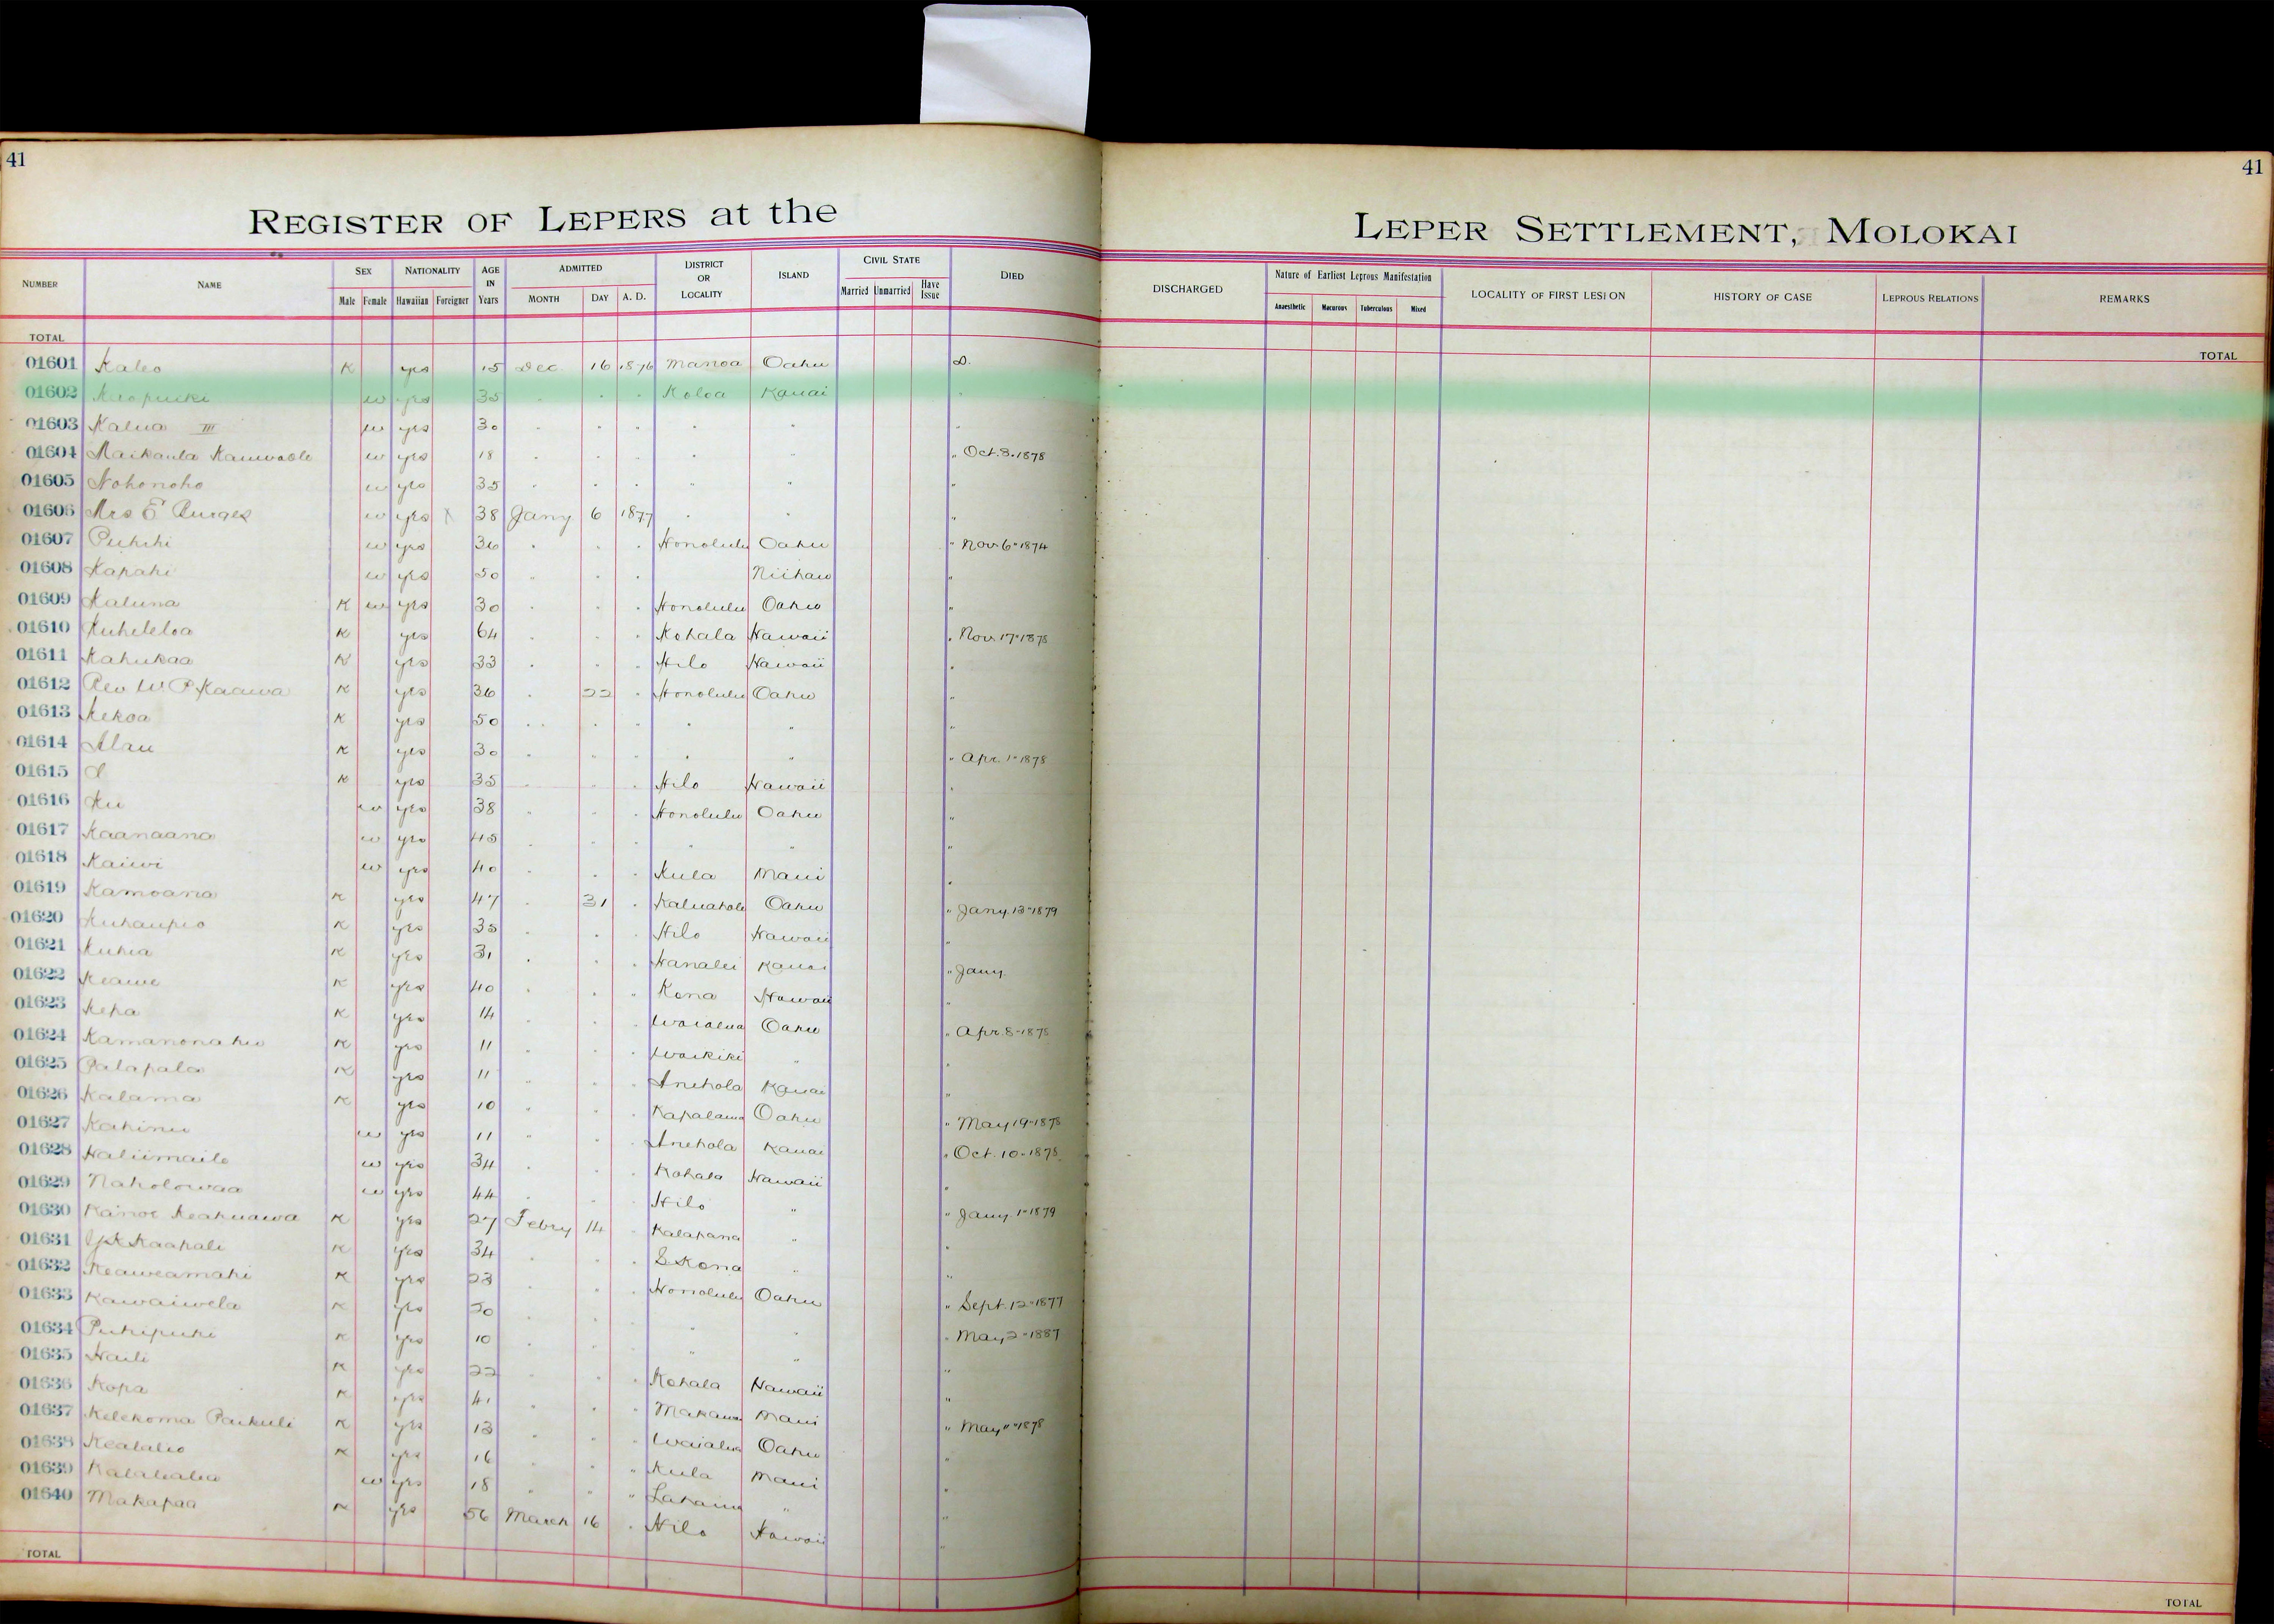 41
41
REGISTER OF LEPERS at the LEPER SETTLEMENT, MOLOKAI
NUMBER NAME SEX Male Female NATIONALITY Hawaiian Foreigner AGE IN Years ADMITTED MONTH DAY A. D. DISTRICT OR LOCALITY ISLAND CIVIL STATE Married Unmarried Have Issue DIED DISCHARGED Nature of Earliest Leprous Manifestation Anaesthetic Macurous Tuberculous Mixed LOCALITY OF FIRST LESION HISTORY OF CASE LEPROUS RELATIONS REMARKS
TOTAL TOTAL
01601 Kaleo K yes 15 Dec 16 1876 Manoa Oahu D.
01602 w yes 35 " " " Koloa Kauai "
01603 Kalua III w yes 30 " " " " " "
01604 w yes 18 " " " " " " Oct. 3. 1878
01605 Nohonoho w yes 35 " " " " " "
01606 Mrs E Burges w yes X 38 Jany 6 1877 " " "
01607 Puhihi w yes 36 " " " Honolulu Oahu " Nov 6" 1874
01608 Kapahi w yes 50 " " " Niihau "
01609 Kaluna K w yes 30 " " " Honolulu Oahu "
01610 Kuheleloa K yes 64 " " " Kohala Hawaii " Nov 17" 1878
01611 Kahukaa K yes 33 " " " Hilo Hawaii "
01612 Rev W. P. Kaawa K yes 36 " 22 " Honolulu Oahu "
01613 Kekoa K yes 50 " " " " " "
01614 Alau K yes 30 " " " " " " Apr. 1" 1878
01615 K yes 35 " " " Hilo Hawaii "
01616 Ku w yes 38 " " " Honolulu Oahu "
01617 Kaanaana w yes 45 " " " " " "
01618 Kaiwi w yes 40 " " " Kula Maui "
01619 Kamoana K yes 47 " 31 " Oahu " Jany. 13" 1879
01620 Kuhaupio K yes 35 " " " Hilo Hawaii "
01621 Kuhia K yes 31 " " " Hanalei Kauai " Jany.
01622 Keawe K yes 40 " " " Kona Hawaii "
01623 Kepa K yes 14 " " " Waialua Oahu " Apr. 8" 1878
01624 Kamanonahu K yes 11 " " " Waikiki " "
01625 Palapala K yes 11 " " " Anehola Kauai "
01626 Kalama K yes 10 " " " Kapalama Oahu " May 19" 1878
01627 Kahinu w yes 11 " " " Anehola Kauai " Oct. 10" 1878
01628 Haliimaile w yes 34 " " " Kohala Hawaii "
01629 Naholowaa w yes 44 " " " Hilo " " Jany. 1" 1879
01630 Kanoe Keahuawa K yes 27 Febry 14 " Kalapana " "
01631 Kaahale K yes 34 " " " S Kona " "
01632 Keaweamahi K yes 23 " " " Honolulu Oahu " Sept. 12" 1877
01633 Kawaiwela K yes " " " " " " May 2" 1887
01634 Puhipuhi K yes 10 " " " " " "
01635 Haili K yes 22 " " " Kohala Hawaii "
01636 Kopa K yes 41 " " " Makawao Maui " May 11" 1878
01637 Kelekoma Paikuli K yes 13 " " " Waialua Oahu "
01638 Kealalio K yes 16 " " " Kula Maui "
01639 w yes 18 " " " Lahaina " "
01640 Makapaa K yes 56 March 16 " Hilo Hawaii "
TOTAL TOTAL